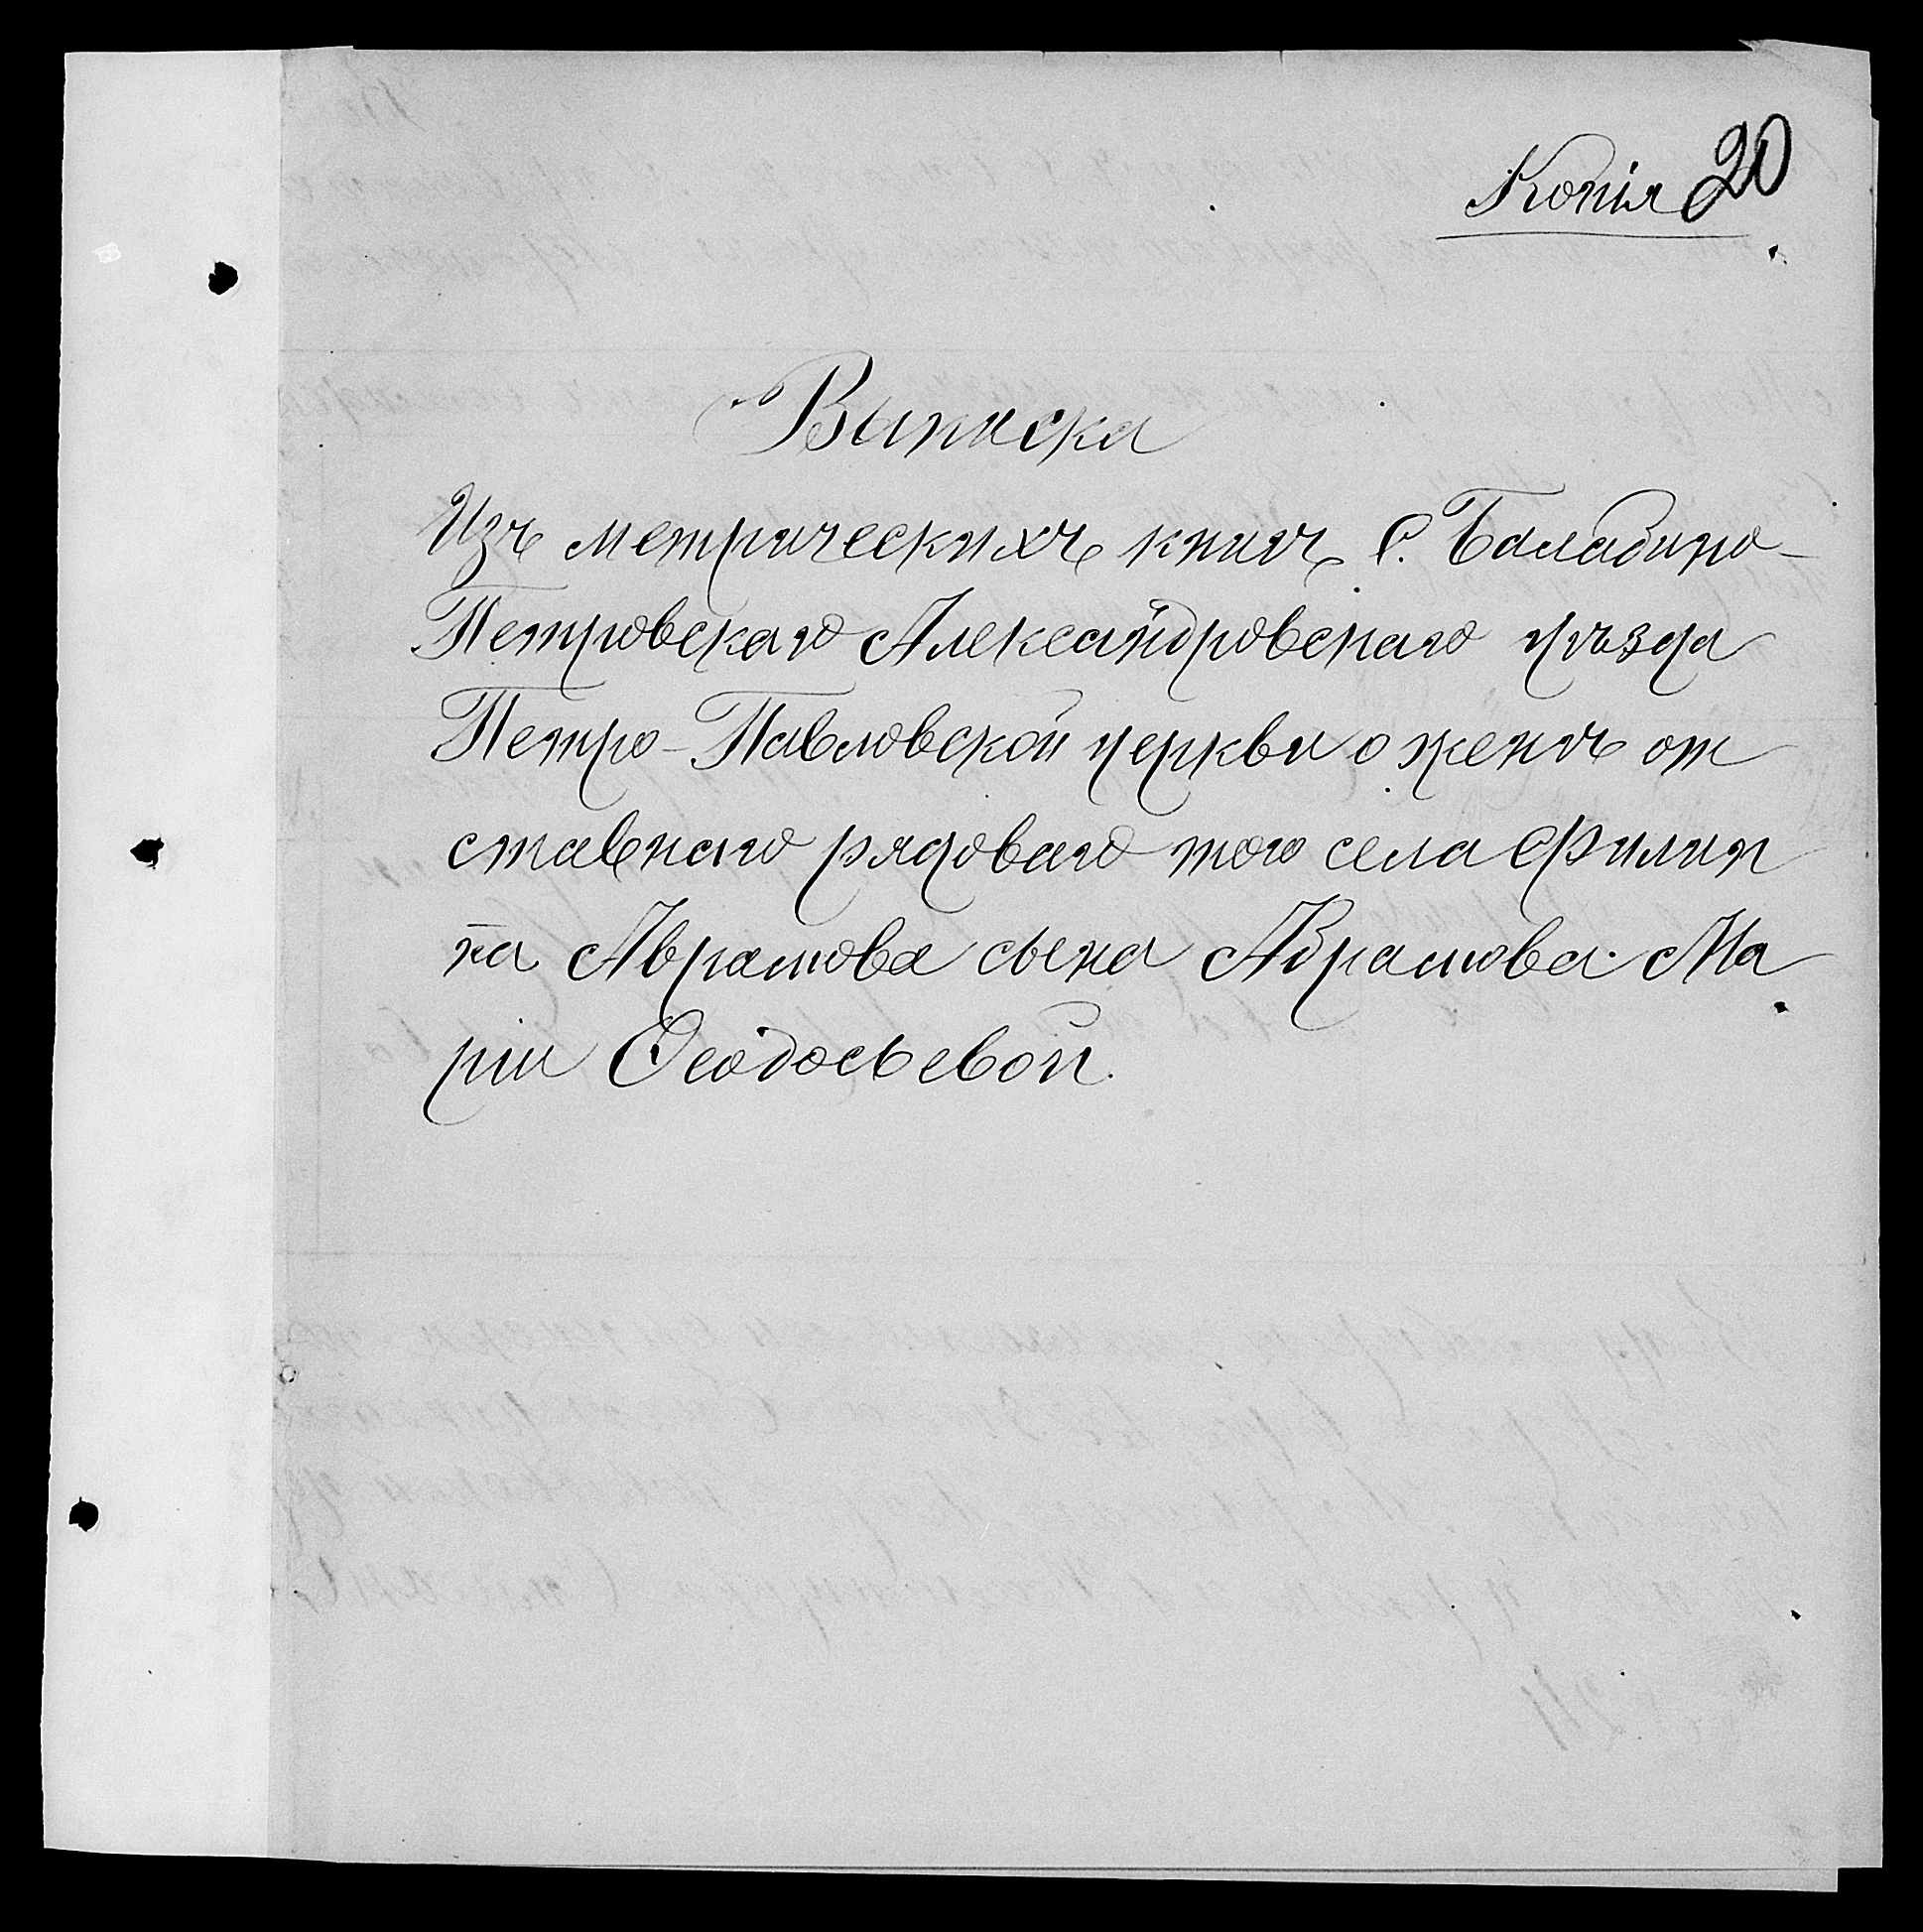 Копія 20
Выписка
Изъ метрическихъ книгъ С. Балабино-
Петровскаго Александровскаго уѣзда
Петро-Павловской церкви о женѣ от
ставнаго рядоваго того села Филип
па Аврамова сына Абрамова Ма
ріи Ѳеодосьевой.